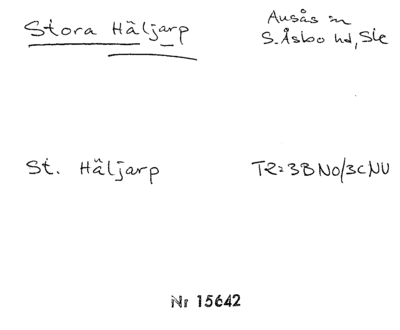 Stora Häljarp
Ausås sn
S. Åsbo hd, Sk
St. Häljarp
TK=3B NO/3C NV
Nr 15642